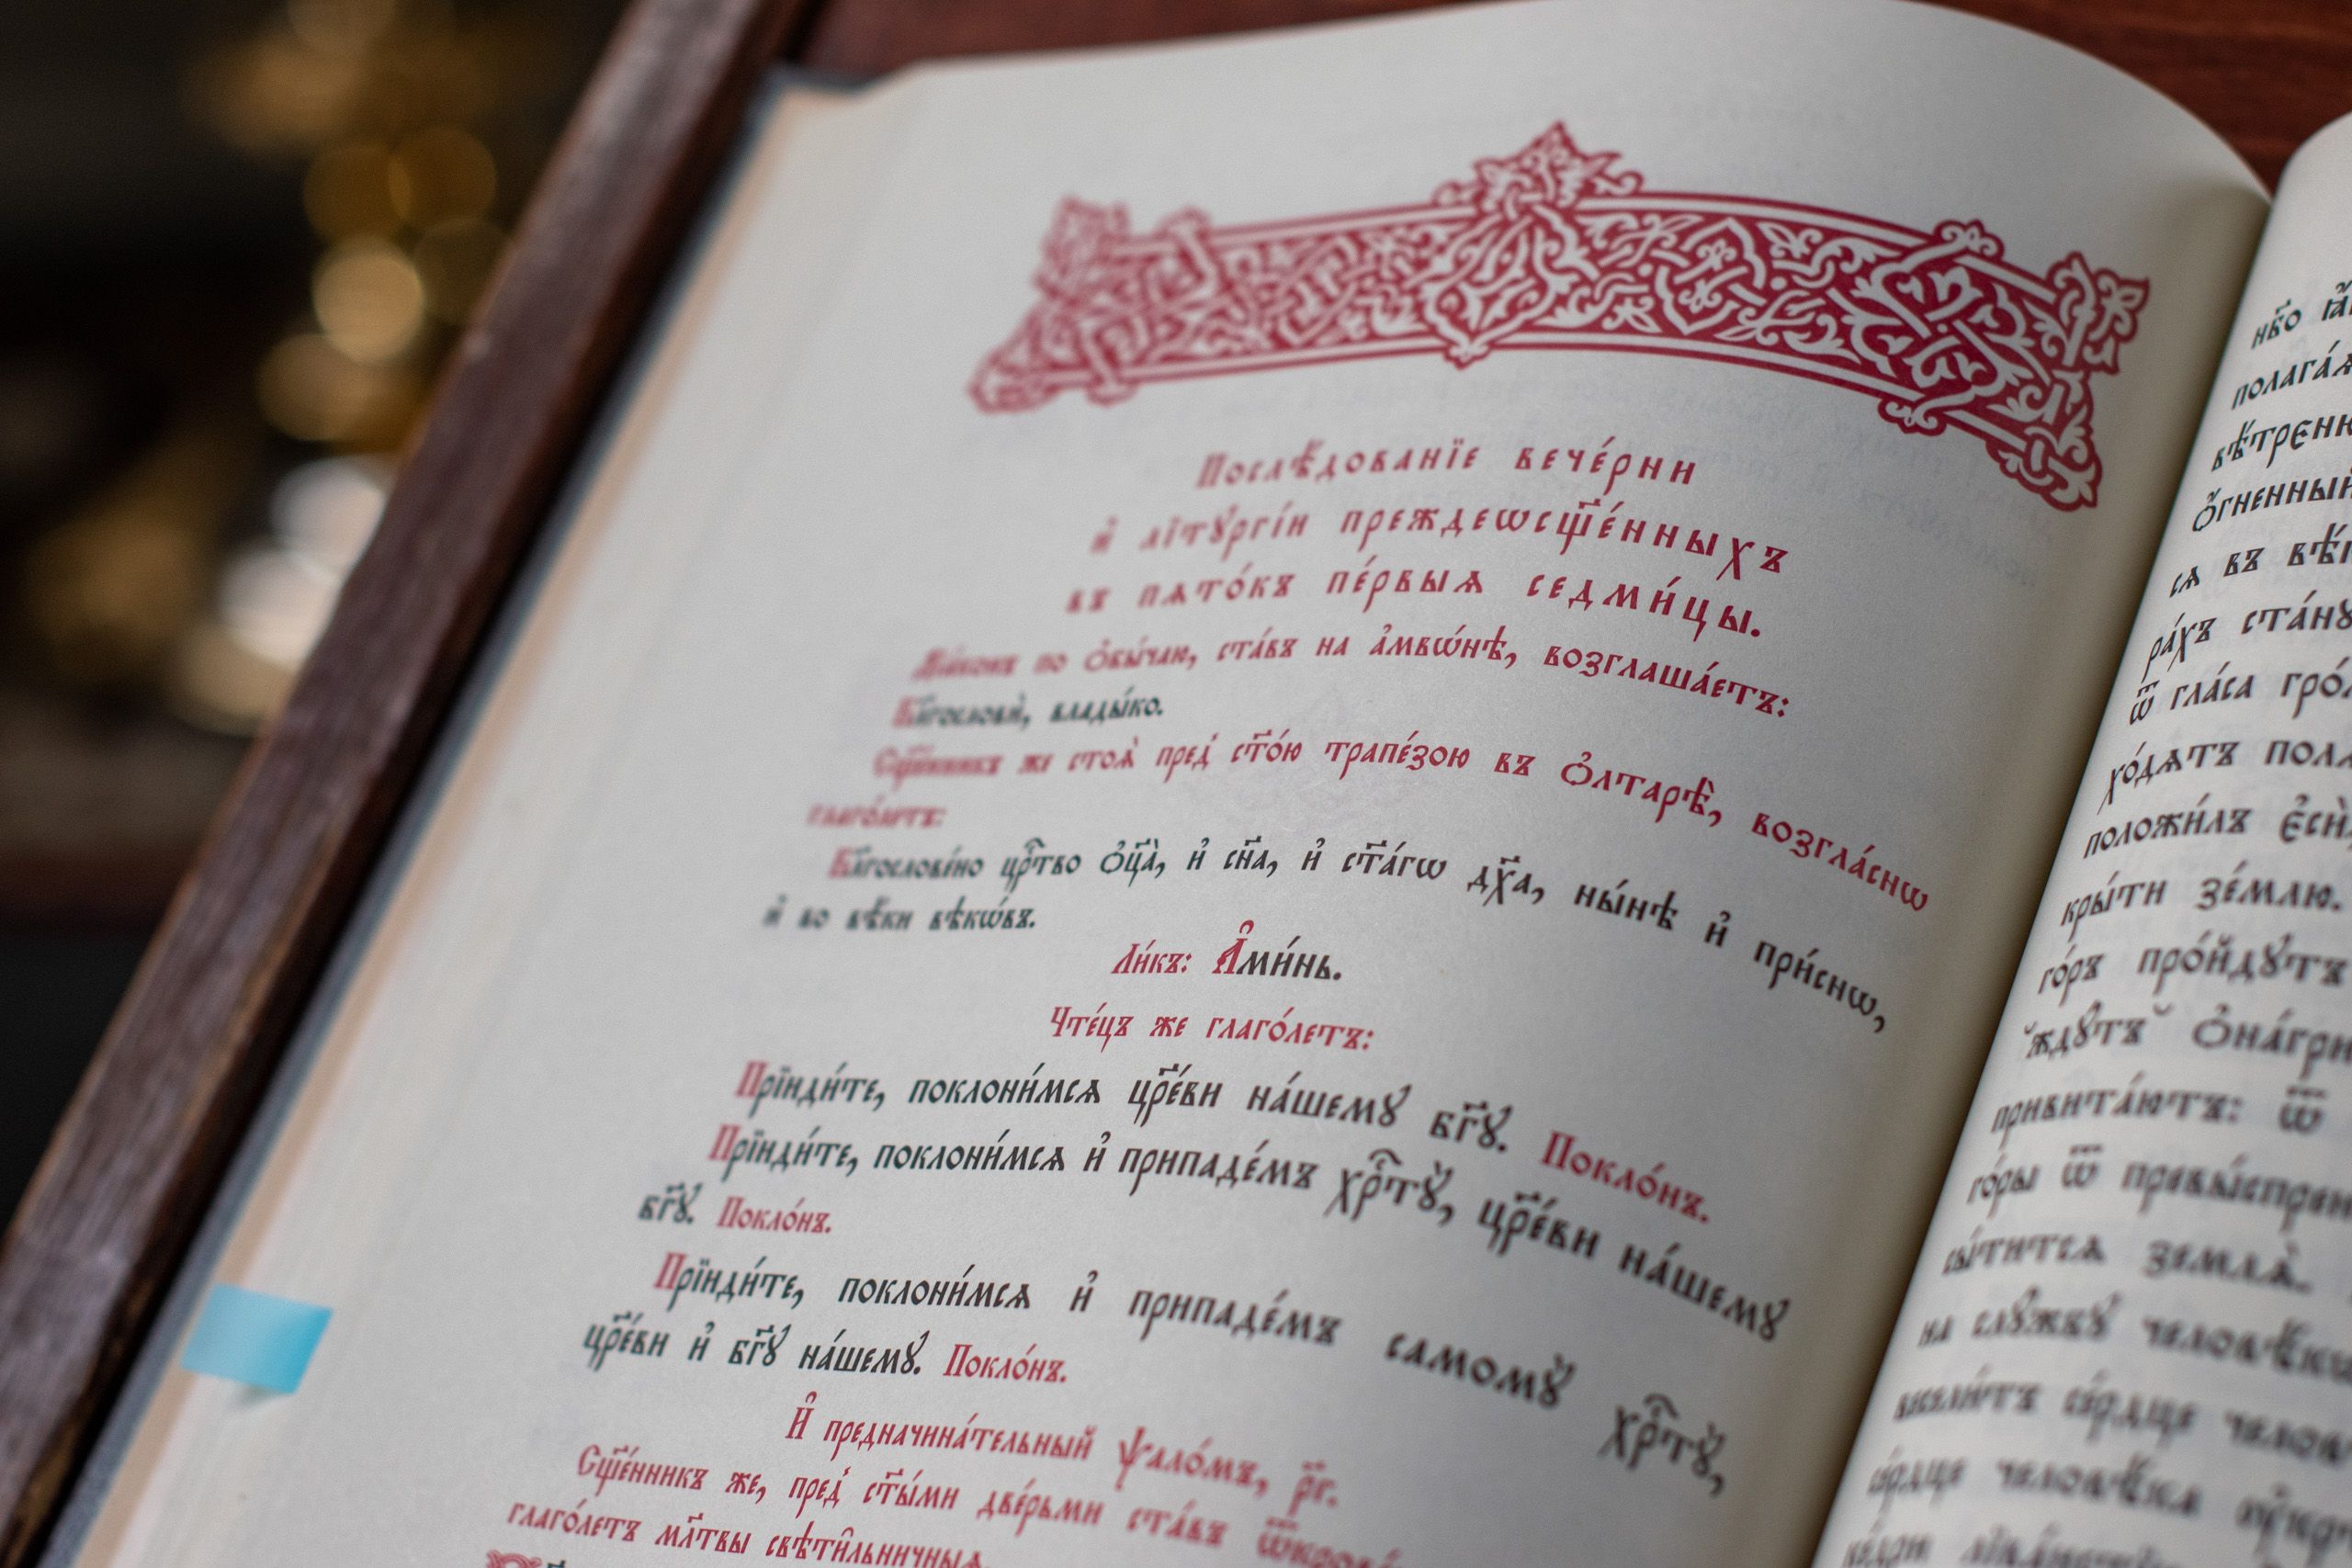 Послѣ́дованїе вече́рни
и҆ лїтꙋргі́и преждеѡсщ҃е́нныхъ
въ пѧто́къ пе́рвыѧ седми́цы.
Дїа́конъ по ѻ҆бы́чаю, ста́въ на а҆мвѡ́нѣ, возглаша́етъ:
Бл҃гословѝ, влады́ко.
Сщ҃е́нникъ же стоѧ̀ пред̾ ст҃о́ю трапе́зою въ ѻ҆лтарѣ̀, возгла́снѡ
глаго́летъ:
Бл҃гослове́но цр҃тво ѻ҆ц҃а̀, и҆ сн҃а, и҆ ст҃а́гѡ дх҃а, ны́нѣ и҆ при́снѡ,
и҆ во вѣ́ки вѣкѡ́въ.
Ли́къ: А҆ми́нь.
Чте́цъ же глаго́летъ:
Прїиди́те, поклони́мсѧ цр҃е́ви на́шемꙋ бг҃ꙋ. Покло́нъ.
Прїиди́те, поклони́мсѧ и҆ припаде́мъ хрⷭ҇тꙋ̀, цр҃е́ви на́шемꙋ
бг҃ꙋ. Покло́нъ.
Прїиди́те, поклони́мсѧ и҆ припаде́мъ самомꙋ̀ хрⷭ҇тꙋ̀,
цр҃е́ви и҆ бг҃ꙋ на́шемꙋ. Покло́нъ.
И҆ предначина́тельный ѱало́мъ, р҃г.
Сщ҃е́нникъ же, пред̾ ст҃ы́ми две́рьми ста́въ
глаго́летъ мл҃твы свѣти̑льничныѧ.
нб҃о
полага́ѧ
ѻ҆́гненный
сѧ въ
ра́хъ
ѿ гла́са
хо́дѧтъ
положи́лъ є҆сѝ,
кры́ти зе́млю.
го́ръ про́йдꙋтъ
ждꙋ́тъ
привита́ютъ: ѿ
го́ры ѿ
сы́титсѧ землѧ̀.
на слꙋ́жбꙋ
се́рдце
се́рдце человѣ́ка